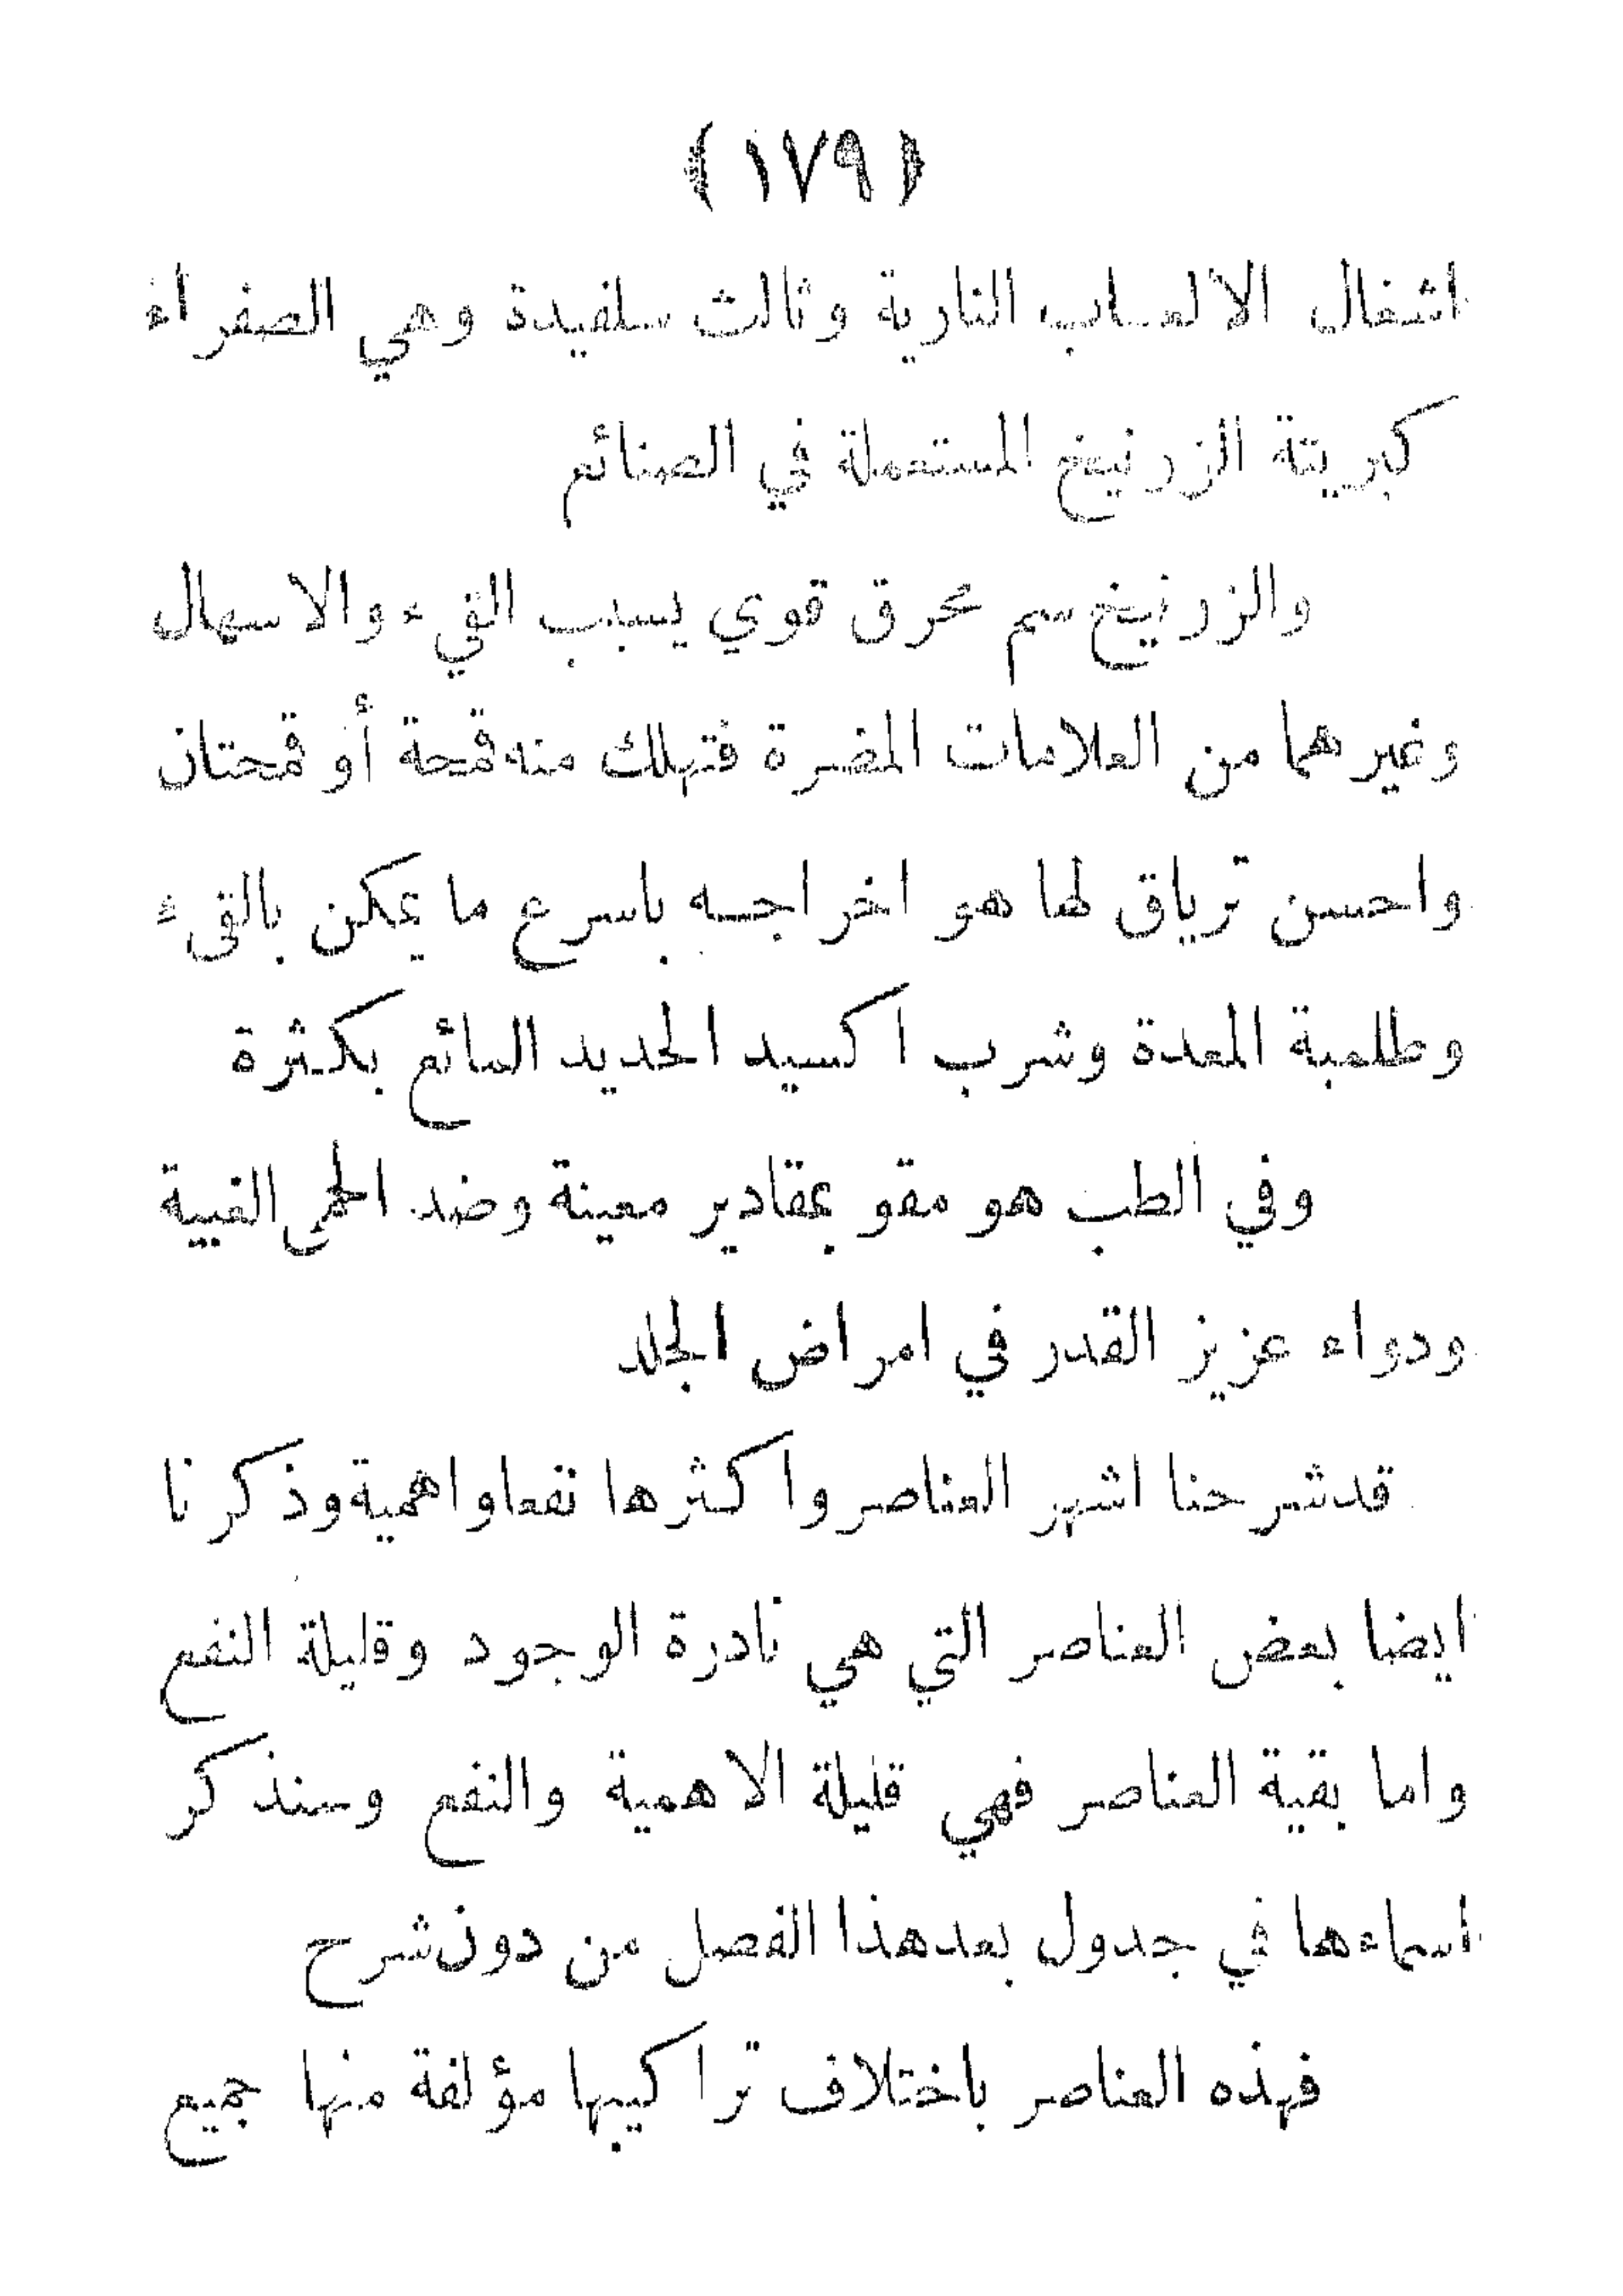 ﴿ ١٧٩ ﴾
اشغال الالعاب النارية وثالث سلفيدة وهي الصفراء
كبريتة الزرنيخ المستعملة في الصنائع
والزرنيخ سم محرق قوي يسبب القيء والاسهال
وغيرهما من العلامات المضرة فتهلك منه قمحة أو قمحتان
واحسن ترياق لها هو اخراجه باسرع ما يمكن بالقىء
وطلمبة المعدة وشرب اكسيد الحديد المائع بكثرة
وفي الطب هو مقو بمقادير معينة وضد الحمى الغبية
ودواء عزيز القدر في امراض الجلد
قد شرحنا اشهر العناصر واكثرها نفعا واهمية وذكرنا
ايضا بعض العناصر التي هي نادرة الوجود وقليلة النفع
واما بقية العناصر فهي قليلة الاهمية والنفع وسنذكر
اسماءها في جدول بعد هذا الفصل من دون شرح
فهذه العناصر باختلاف تراكيبها مؤلفة منها جميع